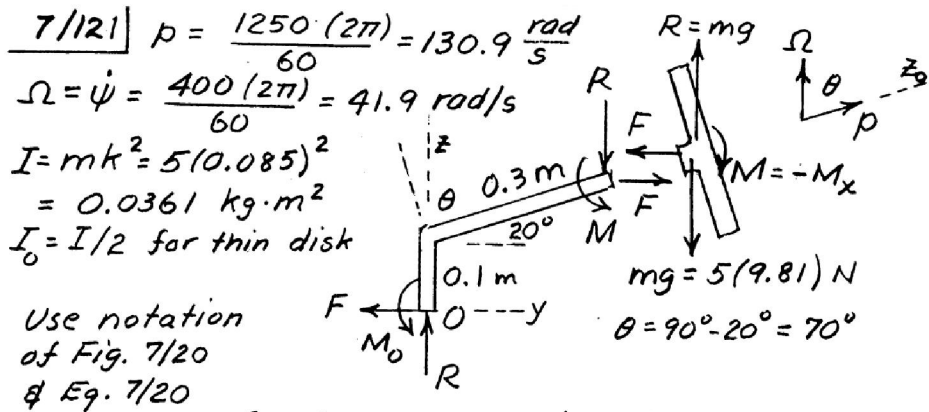 7/121 p = 1250 (2π)/60 = 130.9 rad/s
Ω = ψ̇ = 400 (2π)/60 = 41.9 rad/s
I = mk² = 5(0.085)²
= 0.0361 kg·m²
I₀ = I/2 for thin disk
Use notation
of Fig. 7/20
& Eq. 7/20
z
θ
0.3 m
20°
0.1 m
F
M₀
O
y
R
R
M
F
F
R = mg
M = -Mₓ
mg = 5(9.81) N
θ = 90° - 20° = 70°
Ω
θ
p